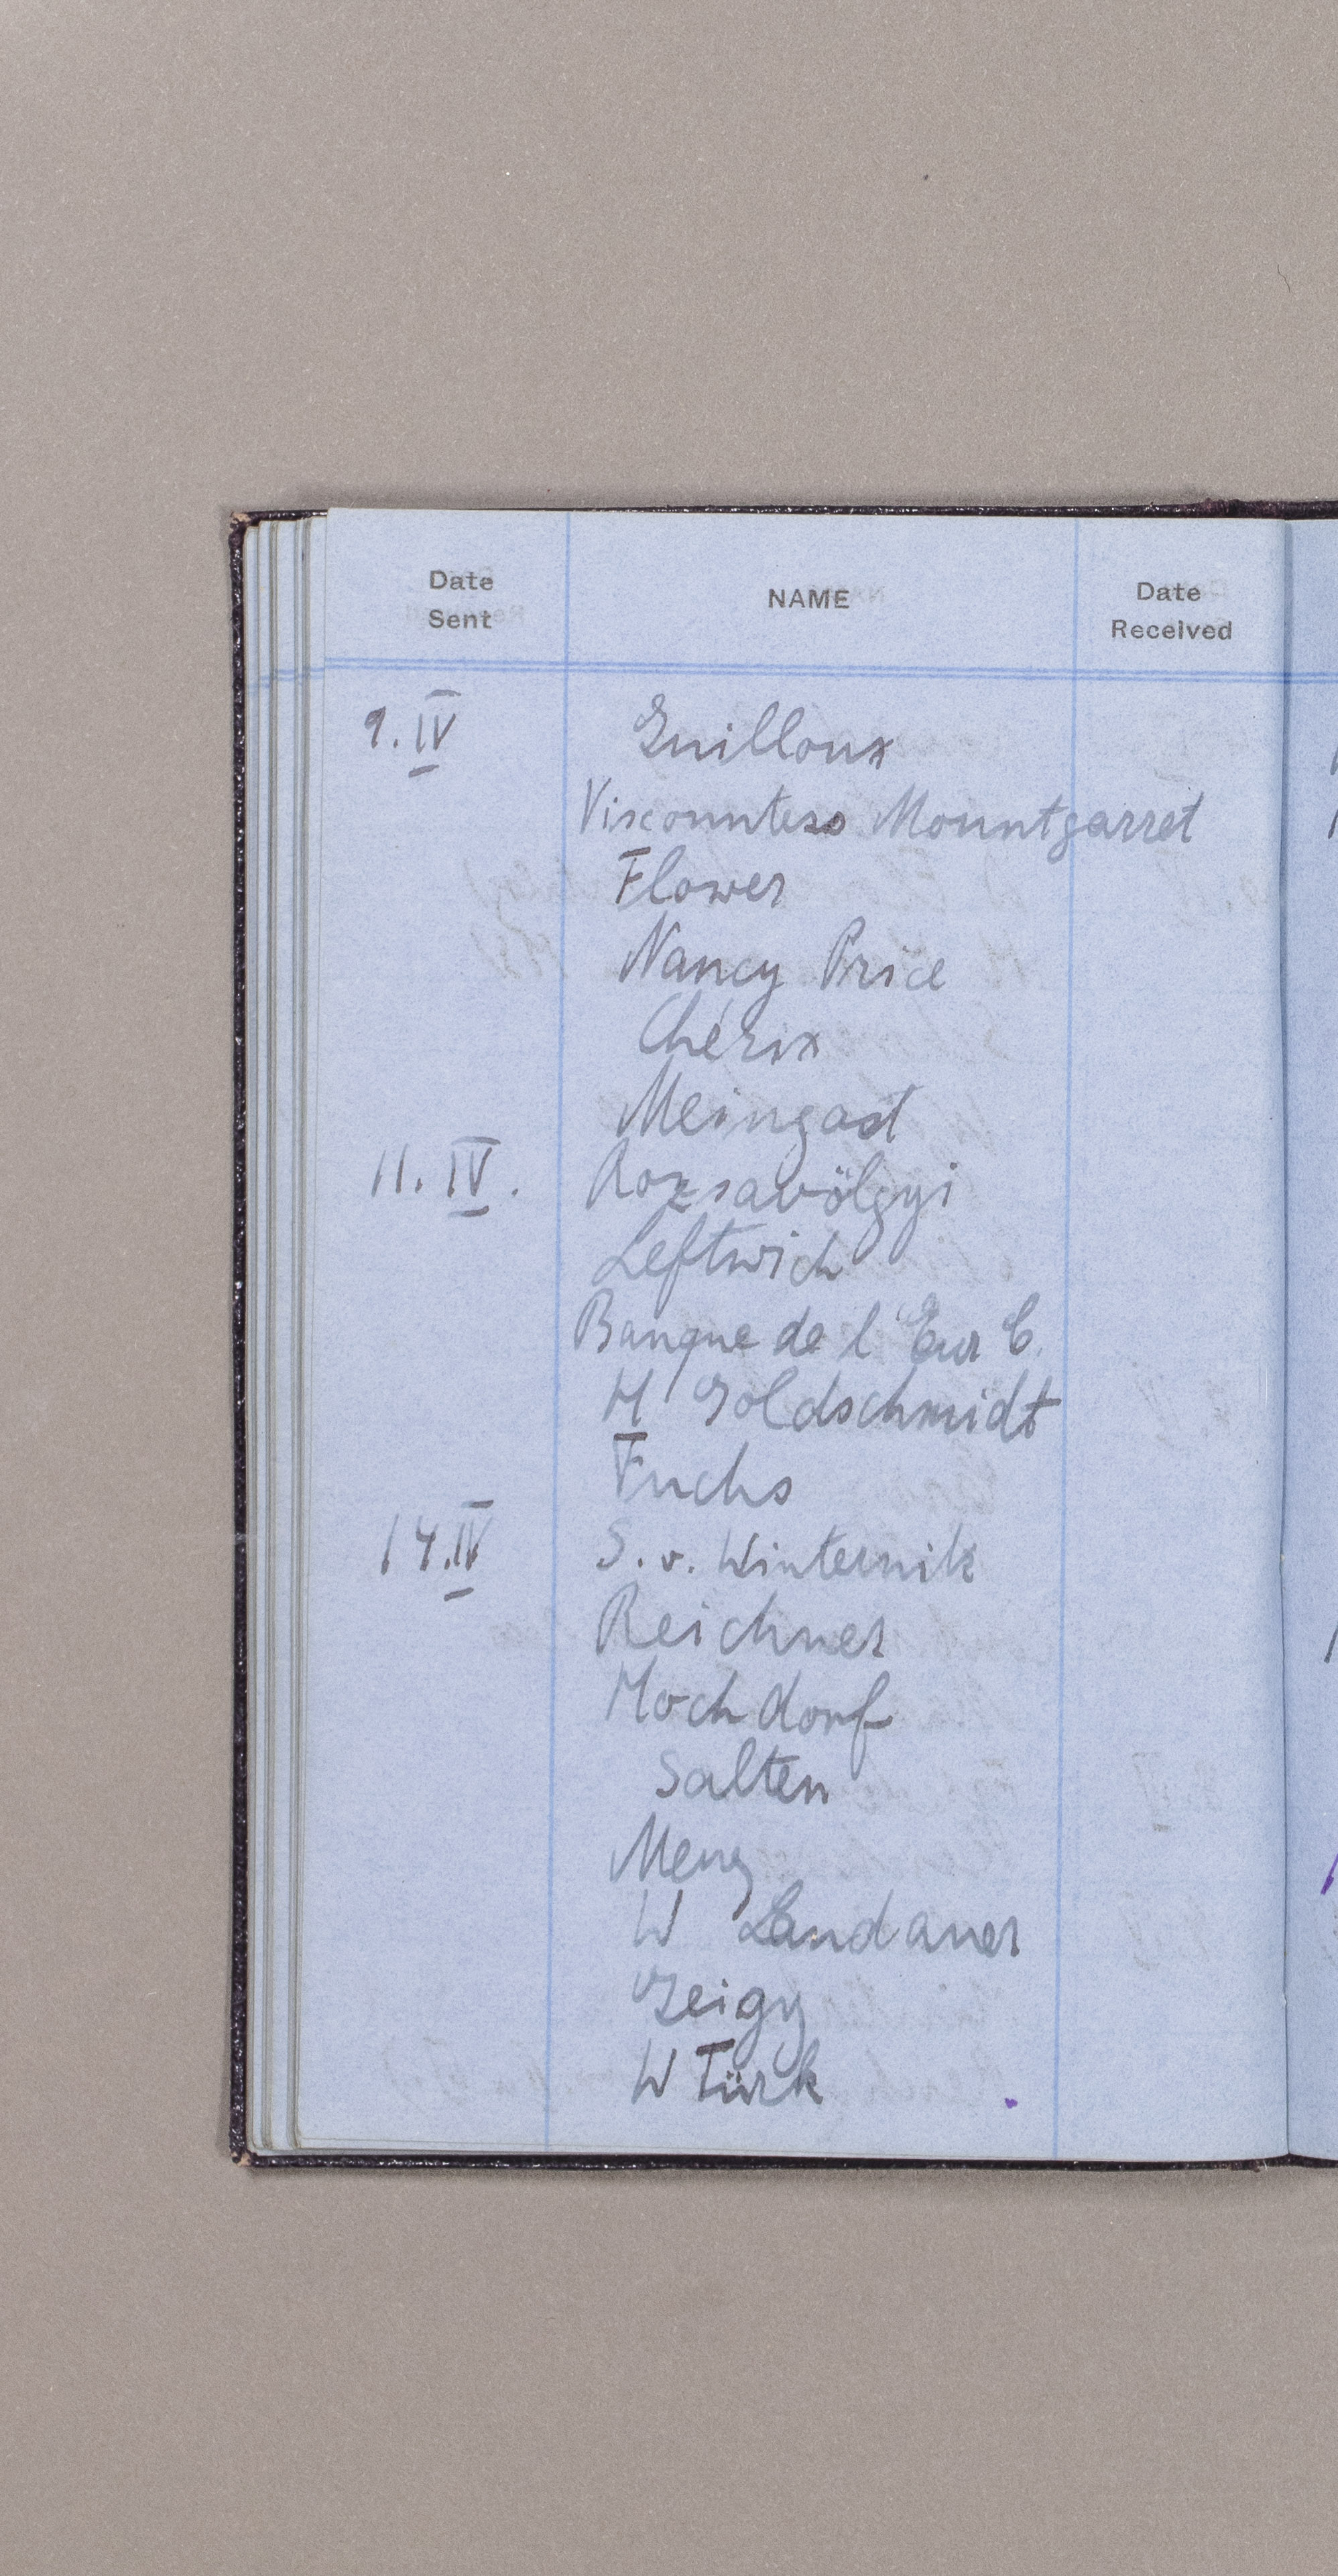 Date Sent NAME Date Received
9. IV Guilloux
Viscountess Mountgarret
Flower
Nancy Price
Chérix
Meingast
11. IV. Rozsavölgyi
Leftwich
Banque de l Eur C.
H Goldschmidt
Fuchs
14. IV S. v. Winternitz
Reichner
Hochdorf
Salten
Meng
W Landauer
Geigy
W Türk